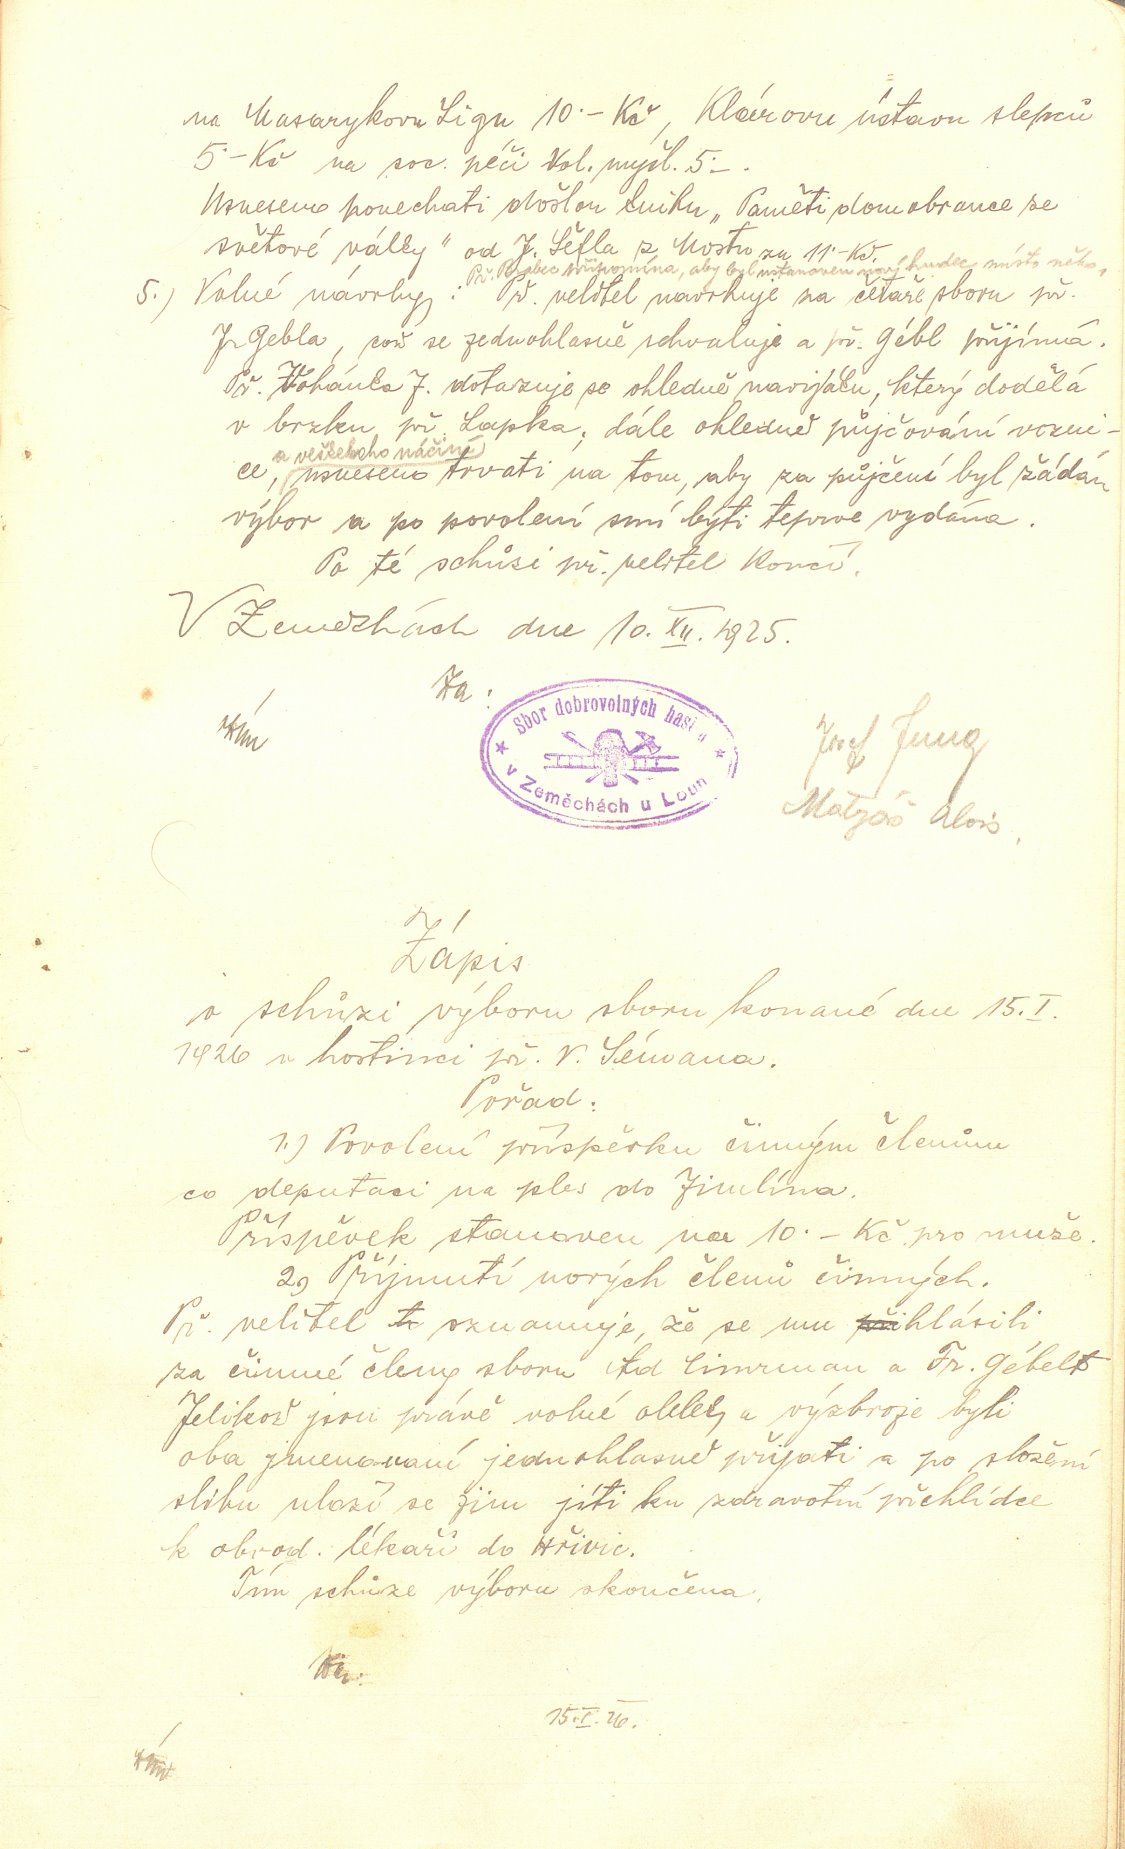 na Masarykovu Ligu 10·– Kč, Klárovu ústavu slepců
5·– Kč na soc. péči Vol. mysl. 5·– .
Usneseno ponechati došlou knihu „Paměti domobrance ze
světové války" od J. Šéfla z Mostu za 11·– Kč.
Př. připomíná, aby byl ustanoven nový hudec místo něho,
5.) Volné návrhy : Př. velitel navrhuje na četaře sboru př.
J. Gebla, což se jednohlasně schvaluje a př. Gébl přijímá.
Př. J. dotazuje se ohledně navijáku, který dodělá
v brzku př. Lapka; dále ohledně půjčování vozni-
a veškeého náčiní
ce, usneseno trvati na tom, aby za půjčení byl žádán
výbor a po povolení smí býti teprve vydána.
Po té schůzi př. velitel končí.
V Zeměchách dne 10. XII. 1925.
Za :
Sbor dobrovolných hasi ů
v Zeměchách u Loun
Josef Jung
Matyáš Alois
Zápis
o schůzi výboru sboru konané dne 15. I.
1926 v hostinci př. V. Sémana.
Pořad:
1.) Povolení příspěvku činným členům
co deputaci na ples do Jimlína.
Příspěvek stanoven na 10·– Kč pro muže.
2) Přijmutí nových členů činných.
Př. velitel oznamuje, že se mu přihlásili
za činné členy sboru Ad Cimrman a Fr. Gébelt
Jelikož jsou právě volné obleky a výzbroje byli
oba jmenovaní jednohlasně přijati a po složení
slibu uloží se jim jíti ku zdravotní přehlídce
k obvod. lékaři do Hřivic.
Tím schůze výboru skončena.
Za:
15. I. 26.